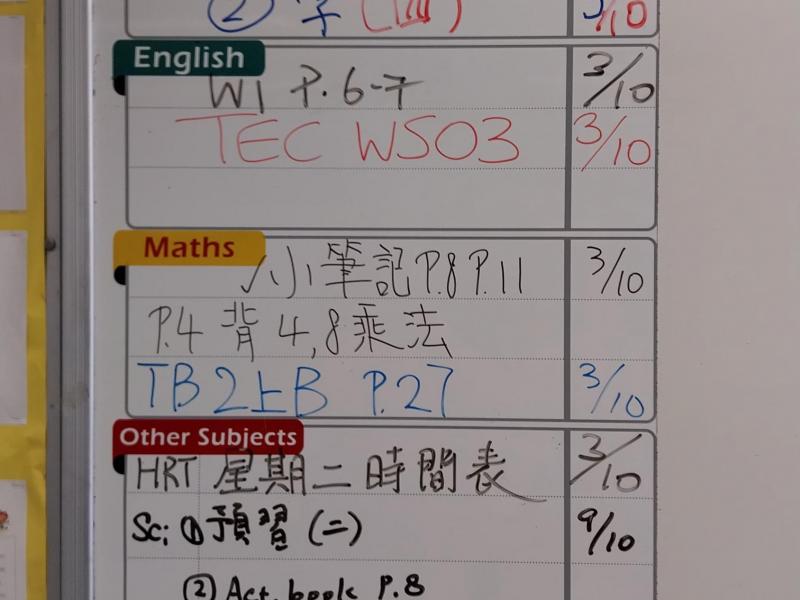 ② 字 (四) 3/10
English
W1 P.6-7 3/10
TEC WS03 3/10
Maths
小筆記 P.8 P.11 3/10
P.4 背 4,8乘法
TB 2上B P.27 3/10
Other Subjects
HRT 星期二時間表 3/10
Sc: ① 預習 (二) 9/10
② Act. book P.8